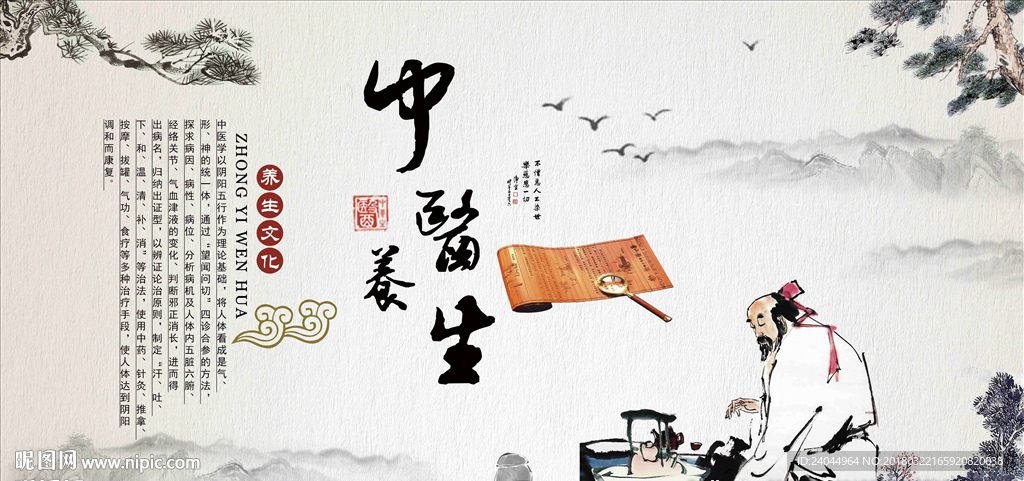 中醫
養生
养生文化
ZHONG YI WEN HUA
中医学以阴阳五行作为理论基础，将人体看成是气、
形、神的统一体，通过“望闻问切”四诊合参的方法，
探求病因、病性、病位、分析病机及人体内五脏六腑、
经络关节、气血津液的变化、判断邪正消长，进而得
出病名，归纳出证型，以辨证论治原则，制定“汗、吐、
下、和、温、清、补、消”等治法，使用中药、针灸、推拿、
按摩、拔罐、气功、食疗等多种治疗手段，使人体达到阴阳
调和而康复。
昵图网 www.nipic.com
ID:24044964 NO:20180322165920820038